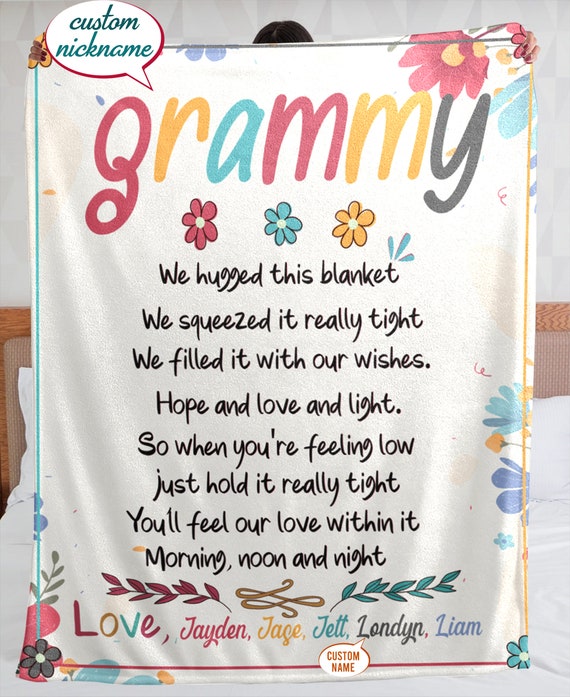 custom
nickname
grammy
We hugged this blanket
We squeezed it really tight
We filled it with our wishes.
Hope and love and light.
So when you're feeling low
just hold it really tight
You'll feel our love within it
Morning, noon and night
Love, Jayden, Jace, Jett, Londyn, Liam
CUSTOM
NAME